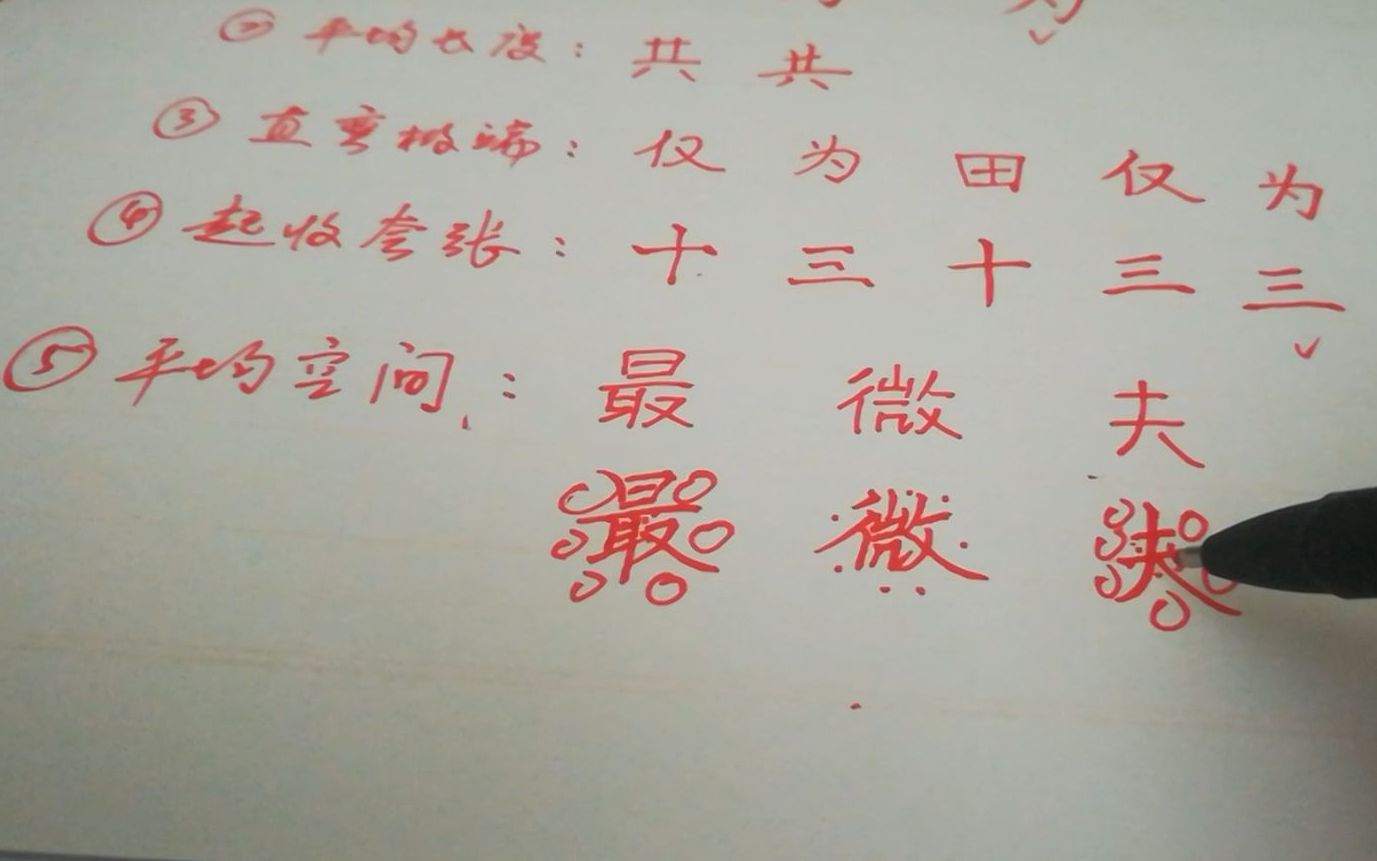 为
② 平均长度：共 共
③ 直弯极端：仅 为 田 仅 为
④ 起收夸张：十 三 十 三 三
⑤ 平均空间：最 微 夫
最 微 夫